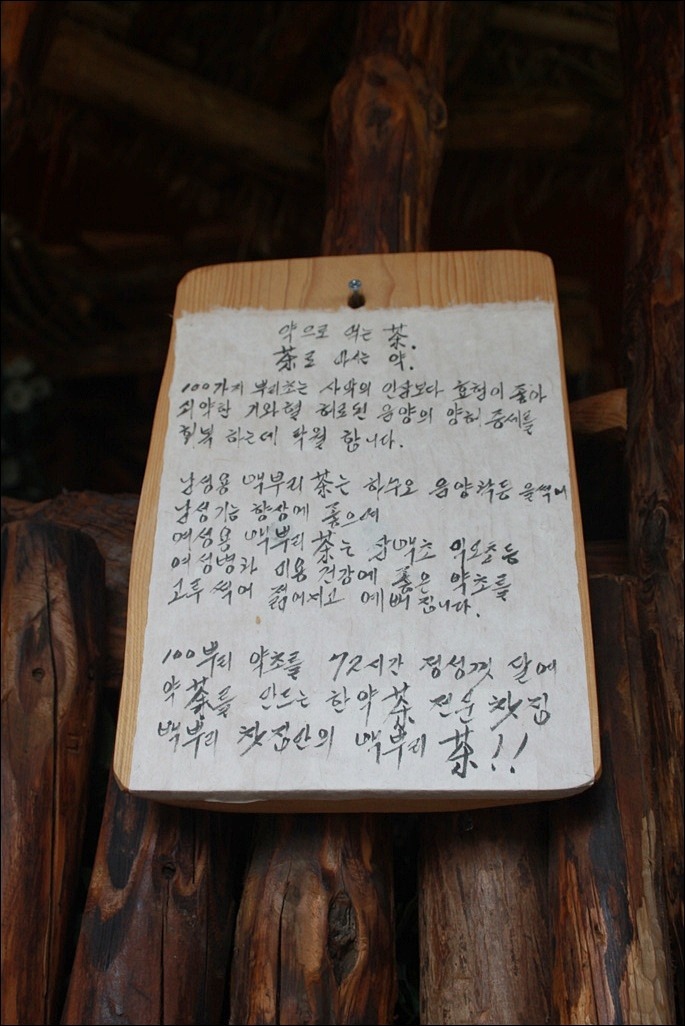 약으로 먹는 茶.
茶로 마시는 약.
100가지 뿌리초는 사백의 인삼보다 효험이 좋아
쇠약한 기와혈 허로된 음양의 양허 증세를
회복 하는데 탁월 합니다.
남성용 백뿌리 茶는 하수오 음양곽등 을썩어
남성기능 향상에 좋으며
여성용 백뿌리 茶는 삼백초 익모초등
여성병과 미용 건강에 좋은 약초를
고루 썩어 젊어지고 예뻐 집니다.
100뿌리 약초를 72시간 정성껏 달여
약茶를 만드는 한약茶 전문 찻집
백뿌리 찻집만의 백뿌리 茶!!